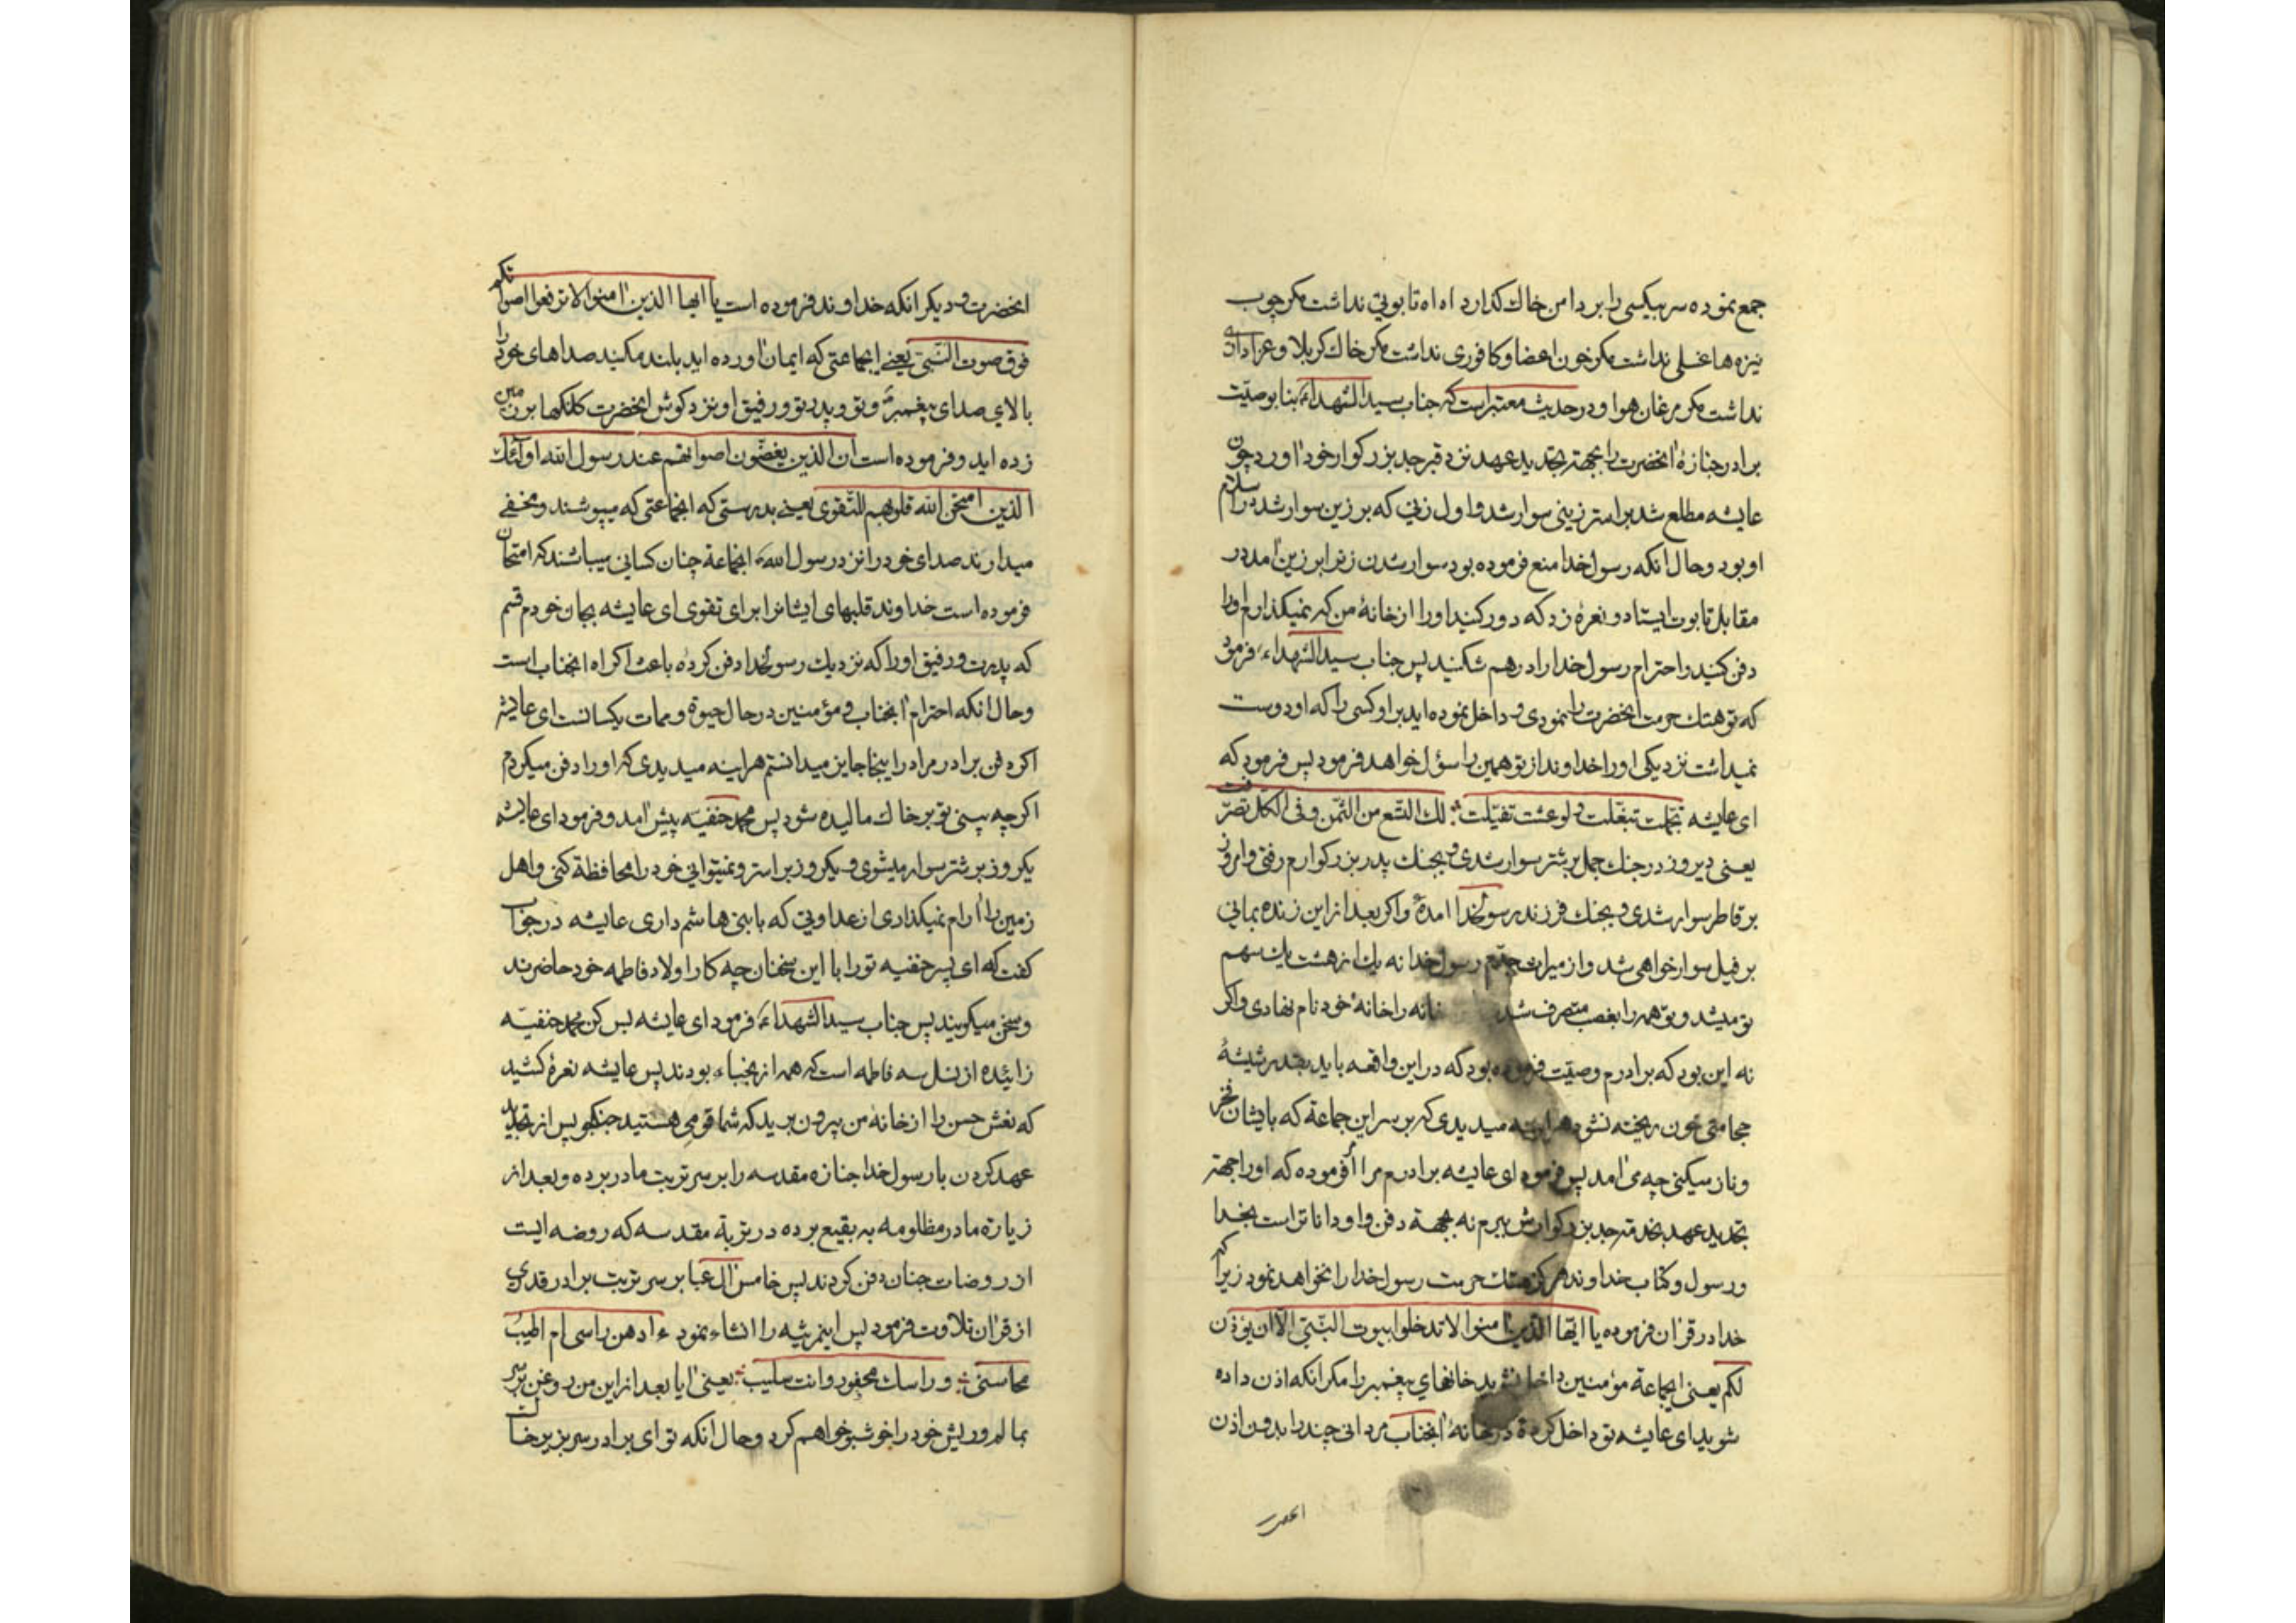 جمع نموده سر بیکسی را بر دامن خاك كذارد اه اه تابوتی نداشت مکر چوب
نیزه ها غسلی نداشت مکر خون اعضا و کافوری نداشت مکر خاك کربلا و عزاداری
نداشت مکر مرغان هوا و در حدیث معتبر است که جناب سید الشهداء بنا بوصیّت
برادر جنازهٔ انحضرت را بجهة تجدید عهد نزد قبر جد بزرکوار خود اورد چون
عایشه مطلع شد بر استر زینی سوار شد و اول زنی که بر زین سوار شد در اسلام
او بود و حال انکه رسول خدا منع فرموده بود سوار شدن زنرا بر زین امد در
مقابل تابوت ایستاد و نعرهٔ زد که دور کنید او را از خانهٔ من که نمیکذارم او را
دفن کنید و احترام رسول خدا را درهم شکنید پس جناب سید الشهداء فرمود
که تو هتك حرمت انحضرت را نمودی و داخل نموده اید بر او کسی را که او دوست
نمیداشت نزدیکی او را خداوند از تو همین را سؤل خواهد فرمود پس فرمود که
ای عایشه تجملت تبغّلت و لو عشت تفیّلت لك التسع من الثمن و فی الکل تصرّفت
یعنی دیروز در جنك جمل بر شتر سوار شدی و بجنك پدر بزرکوارم رفتی و امروز
بر قاطر سوار شدی و بجنك فرزند رسول خدا امدهٔ و اکر بعد از این زنده بمانی
بر فیل سوار خواهی شد و از میراث جدّم رسول خدا نه یك از هشت یك سهم
تو میشد و تو همه را بغصب متصرف شد خانه را خانهٔ خود نام نهادی و اکر
نه این بود که برادرم وصیّت فرموده بود که در این واقعه باید بقدر شیشهٔ
حجامتی خون ریخته نشود هراینه میدیدی که بر سر این جماعة که بایشان فخر
و ناز میکنی چه می امد پس فرمود ای عایشه برادرم مرا امر فرموده که او را جهة
تجدید عهد بخدمت جد بزرکوارش ببرم نه بجهة دفن و او دانا تر است بخدا
و رسول و کتاب خداوند هرکز هتك حرمت رسول خدا را نخواهد نمود زیرا که
خدا در قران فرموده یا ایّها الذین امنوا لا تدخلوا بیوت النّبیّ الّا ان یؤذن
لکم یعنی ایجماعة مؤمنین داخل نشوید خانهای پیغمبر را مکر انکه اذن داده
شوید ای عایشه تو داخل کردهٔ در خانهٔ انجناب مردانی چند را بدون اذن
انحضرت
انحضرت و دیکر انکه خداوند فرموده است یا ایها الذین امنوا لا ترفعوا اصواتکم
فوق صوت النّبیّ یعنی ایجماعتی که ایمان اورده اید بلند مکنید صداهای خود را
بالای صدای پیغمبر و تو و پدر تو و رفیق او نزد کوش انحضرت کلنکها بر زمین
زده اید و فرموده است ان الذین یغضّون اصواتهم عند رسول الله اولئك
الذین امتحن الله قلوبهم للتّقوی یعنی بدرستی که انجماعتی که میپوشند و مخفی
میدارند صدای خود را نزد رسول الله انجماعة چنان کسانی میباشند که امتحان
فرموده است خداوند قلبهای ایشانرا برای تقوی ای عایشه بجان خودم قسم
که پدرت و رفیق او را که نزدیك رسول خدا دفن کرده باعث اکراه انجناب است
و حال انکه احترام انجناب و مؤمنین در حال حیوة و ممات یکسانست ای عایشه
اکر دفن برادر مرا در اینجا جایز میدانستم هراینه میدیدی که او را دفن میکردم
اکرچه بینی تو بر خاك مالیده شود پس محمد حنفیّه پیش امد و فرمود ای عایشه
یکروز بر شتر سوار میشوی و یکروز بر استر و نمیتوانی خود را محافظة کنی و اهل
زمین را ارام نمیکذاری از عداوتی که با بنی هاشم داری عایشه در جواب
کفت که ای پسر حنفیه تو را با این سخنان چه کار اولاد فاطمه خود حاضرند
و سخن میکویند پس جناب سید الشهداء فرمود ای عایشه بس کن محمد حنفیّه
زائیده از نسل سه فاطمه است که همه از نجباء بودند پس عایشه نعرهٔ کشید
که نعش حسن را از خانهٔ من بیرون برید که شما قومی هستید جنکجو پس از تجدید
عهد کردن با رسول خدا جنازه مقدسه را بر سر تربت مادر برده و بعد از
زیارة مادر مظلومه به بقیع برده در تربة مقدسه که روضه ایست
از روضات جنان دفن کردند پس خامس ال عبا بر سر تربت برادر قدری
از قران تلاوت فرمود پس اینمرثیه را انشاء نمود ءادهن راسی ام اطیب
محاسنی و راسك محفور وانت سلیب یعنی ایا بعد از این من روغن بر سر
بمالم و ریش خود را خوشبو خواهم کرد و حال انکه تو ای برادر سر بزیر خاك